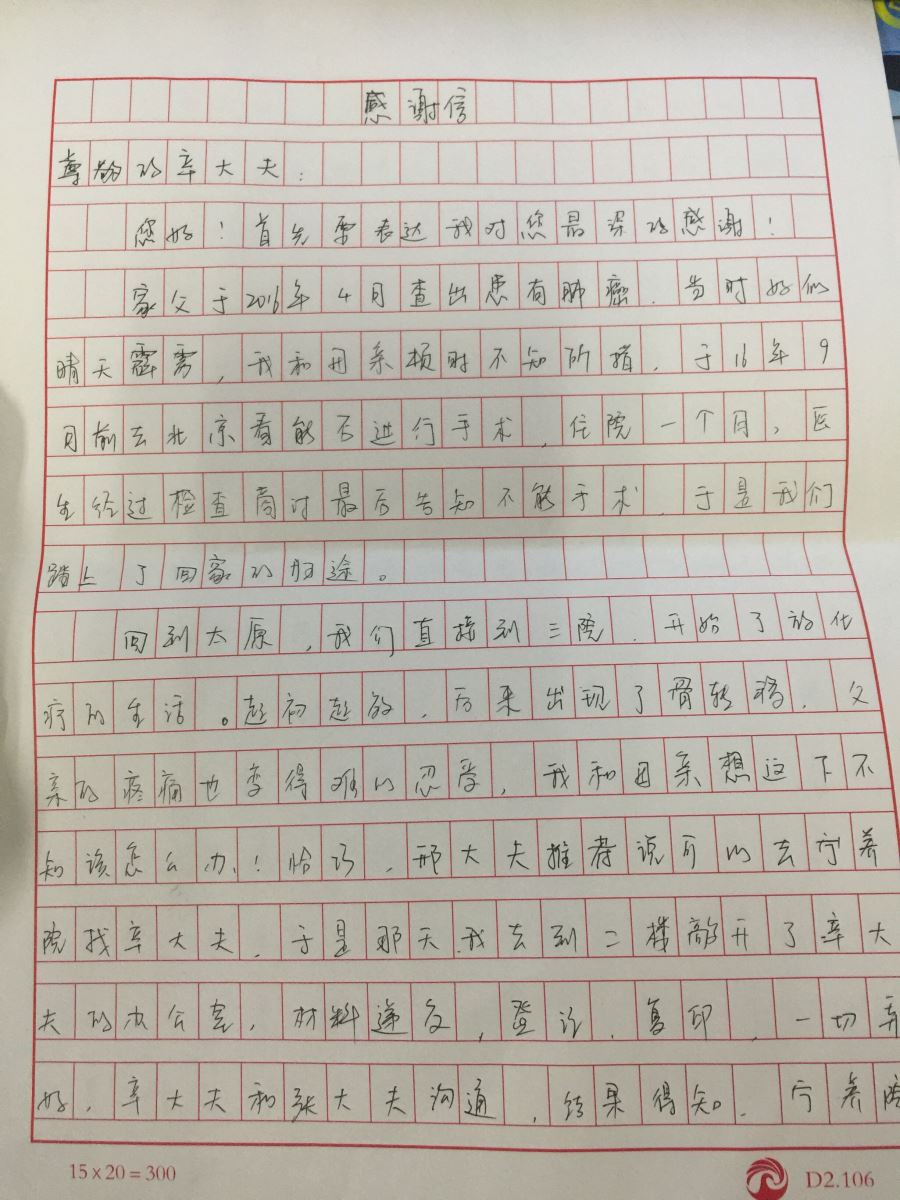 感谢信
尊敬的辛大夫：
您好！首先要表达我对您最深的感谢！
家父于2016年4月查出患有肺癌，当时好似
晴天霹雳，我和母亲顿时不知所措，于16年9
月前去北京看能否进行手术，住院一个月，医
生经过检查商讨最后告知不能手术，于是我们
踏上了回家的归途。
回到太原，我们直接到三院，开始了放化
疗的生活。起初起效，后来出现了骨转移，父
亲的疼痛也变得难以忍受，我和母亲想这下不
知该怎么办！恰巧，邢大夫推荐说可以去宁养
院找辛大夫，于是那天我去到二楼敲开了辛大
夫的办公室，材料递交，登记，复印，一切弄
好，辛大夫和张大夫沟通，结果得知，宁养院
15×20=300
D2.106